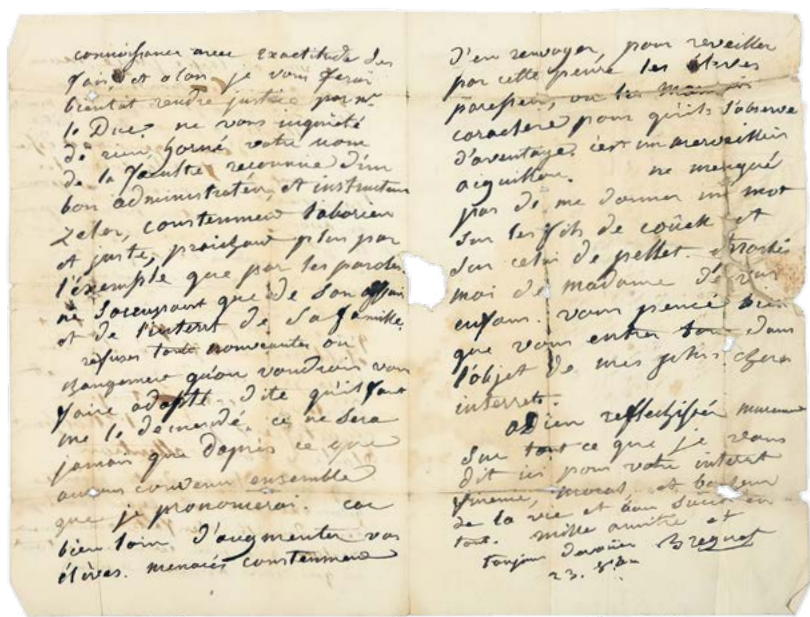 connoissance avec exactitude des
fais et alors je vous ferai
bientot rendre justice par mr
le Duc. ne vous inquieté
de rien votre nom
de la faculté reconnue d'un
bon administrateur, et instructeur
zeler, constenment laborieu
et juste, plus par
l'exemple que par les paroles.
ne s'occupant que de son
et de l'interet de sa famille.
refuses toute nouveautes ou
changement qu'on voudrois vous
faire adopté. dite qu'il faut
me le demandé. ce ne sera
jamais que dapres ce que
aurons convenu ensemble
que je prononcerai. car
bien loin d'augmenter vos
élèves. menacés constenment
d'en renvoyer, pour reveiller
par cette peure les élèves
paresseux, ou
caractere pour qu'ils s'observe
d'avantage. c'est un merveilleux
aiguillon. ne menqué
pas de me donner un mot
sur les fils de et
sur celui de pellet.
moi de madame de vos
enfans. vous pencé bien
que vous entrer tous dans
l'objet de mes plus chers
interrets.
aDieu reflechissés murement
sur tout ce que je vous
dit ici pour votre interet
moral, et bonheur
de la vie et bon succes en
tout. mille amitié et
toujour devouer Breguet
23. 8bre